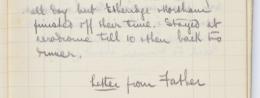 all day but Etheridge & Horsham
finished off their time. Stayed at
aerodrome till 10 then back to
dinner.
Letter from Father